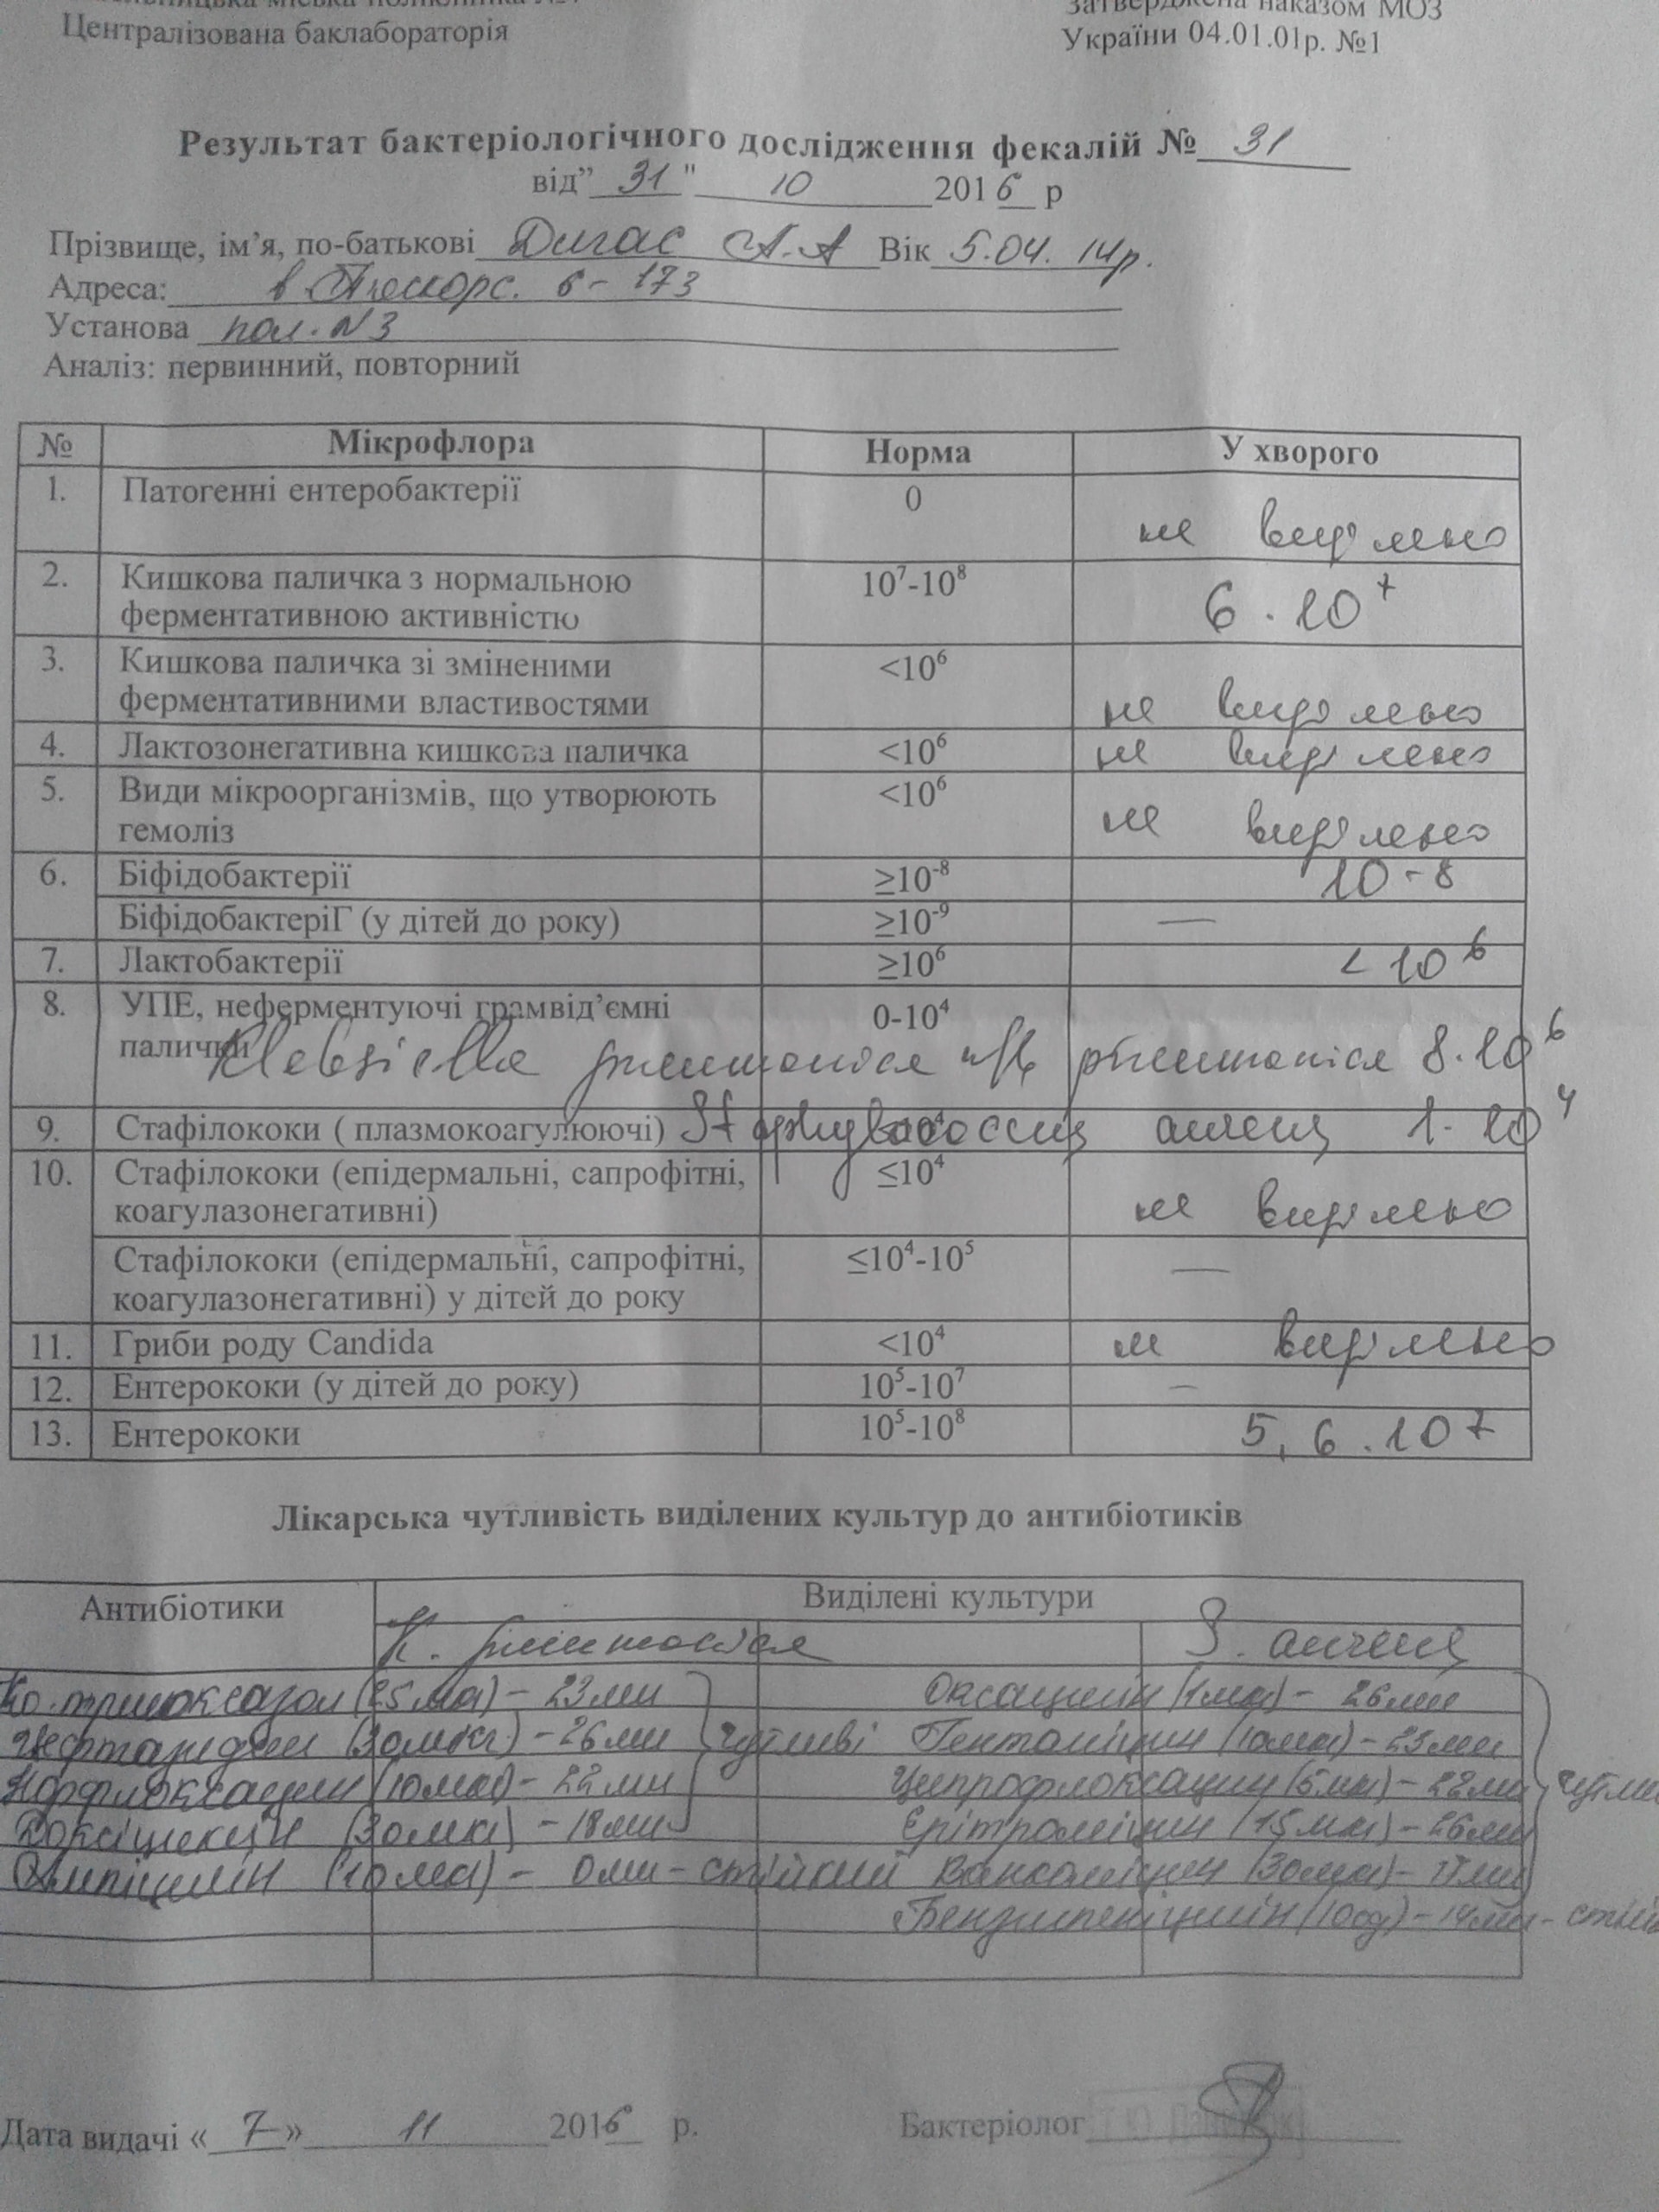 Централізована баклабораторія
Затверджена наказом МОЗ
України 04.01.01р. №1
Результат бактеріологічного дослідження фекалій № 31
від" 31 " 10 2016 р
Прізвище, ім'я, по-батькові Дигас А.А Вік 5.04.14р.
Адреса: 6-173
Установа пол. N3
Аналіз: первинний, повторний
№ Мікрофлора Норма У хворого
1. Патогенні ентеробактерії 0 не виділено
2. Кишкова паличка з нормальною 10⁷-10⁸ 6·10⁷
ферментативною активністю
3. Кишкова паличка зі зміненими <10⁶
ферментативними властивостями не виділено
4. Лактозонегативна кишкова паличка <10⁶ не виділено
5. Види мікроорганізмів, що утворюють <10⁶ не виділено
гемоліз
6. Біфідобактерії ≥10⁻⁸ 10-8
БіфідобактеріГ (у дітей до року) ≥10⁻⁹ —
7. Лактобактерії ≥10⁶ <10⁶
8. УПЕ, неферментуючі грамвід'ємні 0-10⁴
палички Klebsiella pneumoniae п/в pneumoniae 8·10⁶
9. Стафілококи ( плазмокоагулюючі) Staphylococcus aureus 1·10⁴
10. Стафілококи (епідермальні, сапрофітні, ≤10⁴ не виділено
коагулазонегативні)
Стафілококи (епідермальні, сапрофітні, ≤10⁴-10⁵ —
коагулазонегативні) у дітей до року
11. Гриби роду Candida <10⁴ не виділено
12. Ентерококи (у дітей до року) 10⁵-10⁷ —
13. Ентерококи 10⁵-10⁸ 5,6·10⁷
Лікарська чутливість виділених культур до антибіотиків
Антибіотики Виділені культури
K. pneumoniae S. aureus
Ко-тримоксазол (25мкг) - 23мм Оксацилін (1мкг) - 26мм
Цефтазидим (30мкг) - 26мм чутливі Гентаміцин (10мкг) - 23мм
Норфлоксацин (10мкг) - 22мм Ципрофлоксацин (5мкг) - 22мм
Доксициклін (30мкг) - 18мм Ерітроміцин (15мкг) - 26мм
Ампіцилін (10мкг) - 0мм - стійкий Ванкоміцин (30мкг)
Бензилпеніцилін (10од) - 14мм
Дата видачі « 7 » 11 2016 р. Бактеріолог